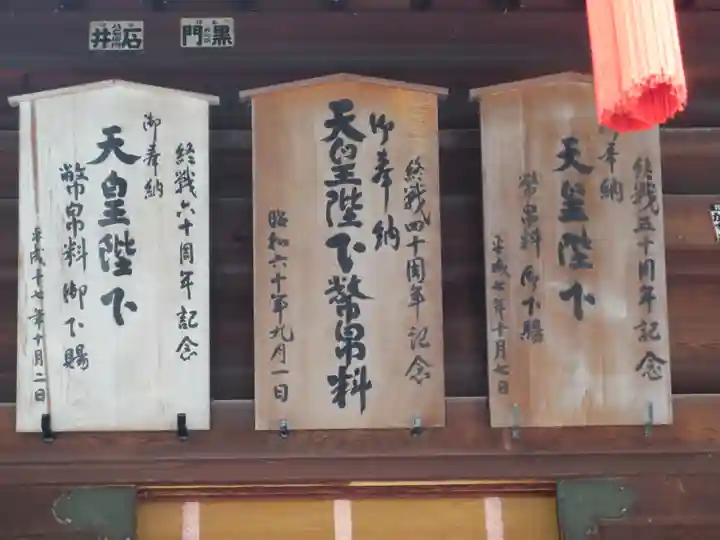 石井
黒門
終戦五十周年記念
奉納
天皇陛下
幣帛料御下賜
平成七年十月七日
終戦四十周年記念
御奉納
天皇陛下幣帛料
昭和六十年九月一日
終戦六十周年記念
御奉納
天皇陛下
幣帛料御下賜
平成十七年十月二日